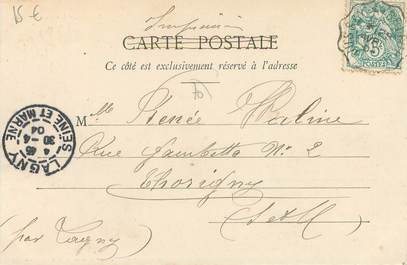 15 €
Imprimé
CARTE POSTALE
Ce côté est exclusivement réservé à l'adresse
70
Mlle Renée
Rue Gambetta No 2
Thorigny
(S et M)
(par Lagny)
LAGNY
SEINE ET MARNE
30 -4
04